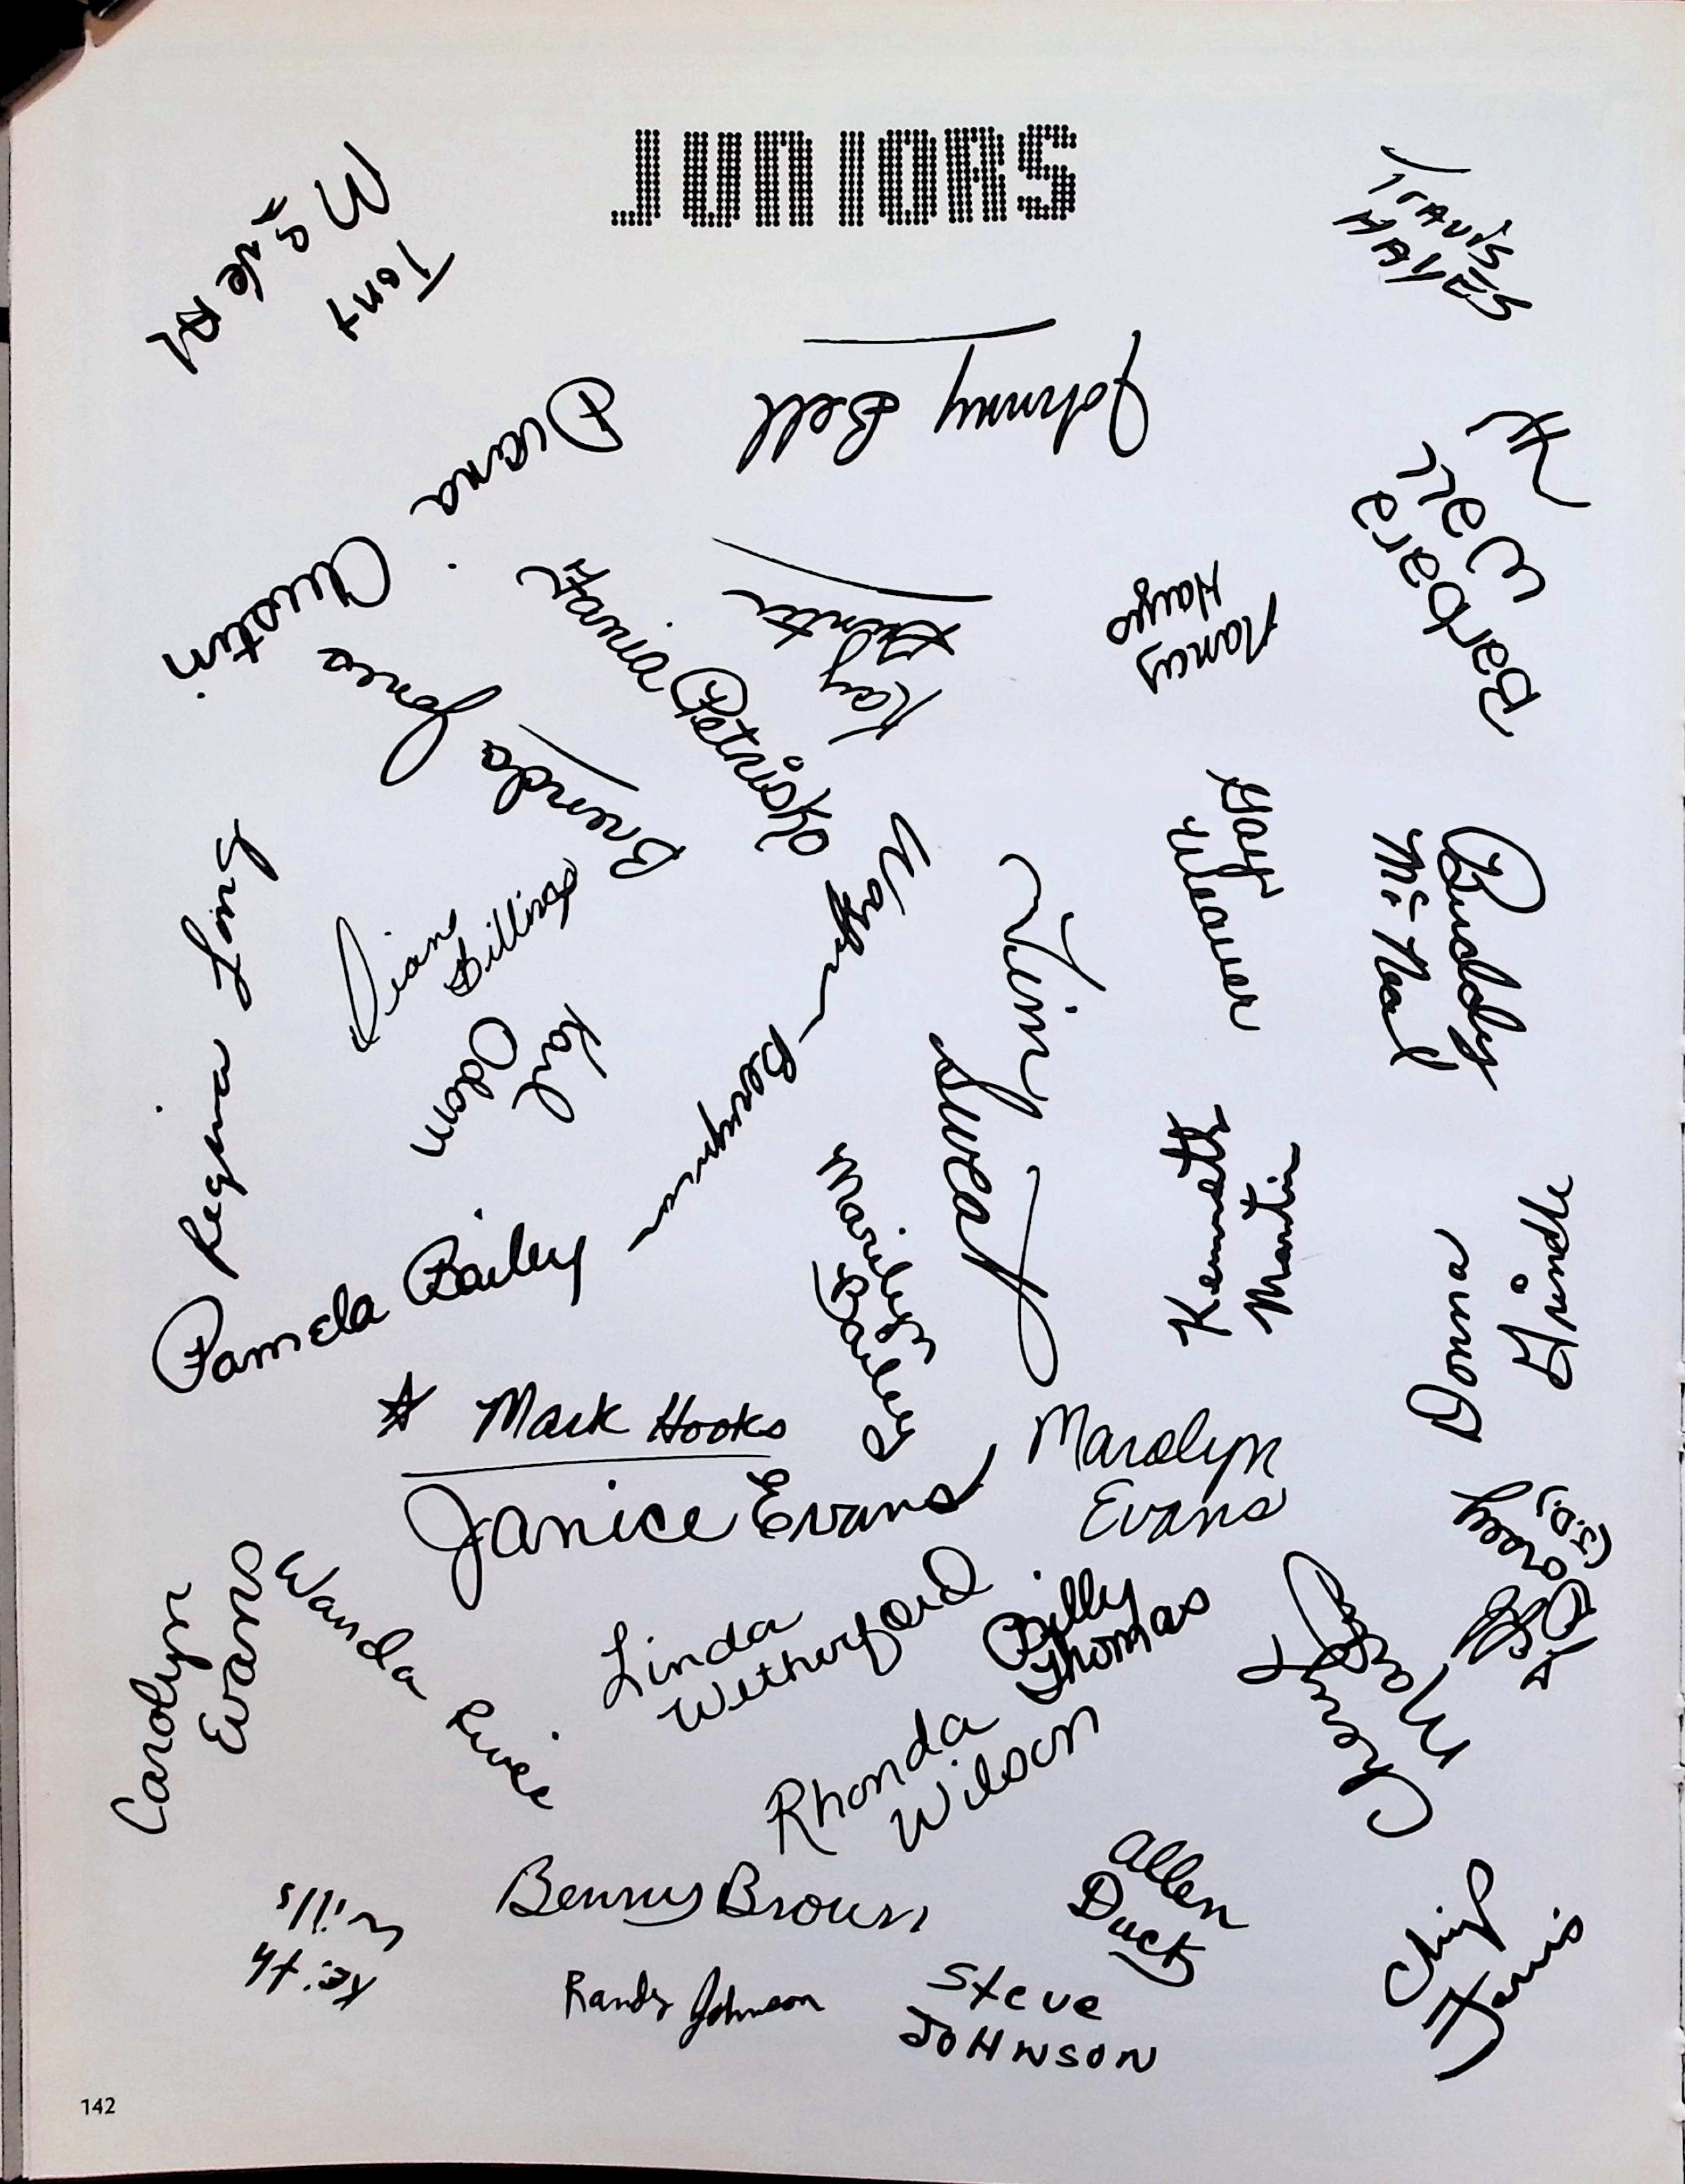 JUNIORS
Travis
Hayes
Johnny Bell
Diana
Austin
Barbara
Wall
Nancy
Hayes
Kay
Brenda Jones
Gay
Weaver
Buddy
McNeal
Wayne Berryman
Kim Sweat
Regina Long
Dian
Billings
Karl
Odom
Pamela Bailey
Marilyn
Bailey
Kenneth
Martin
Donna
Grindle
* Mark Hooks
Janice Evans
Marolyn
Evans
Carolyn
Evans
Wanda Rice
Linda
Wetherford
Billy
Thomas
Rhonda
Wilson
Cheryl
(J.D.)
Keith
Mills
Benny Brown
Allen
Duck
Randy Johnson
Steve
JOHNSON
Chip
Harris
142